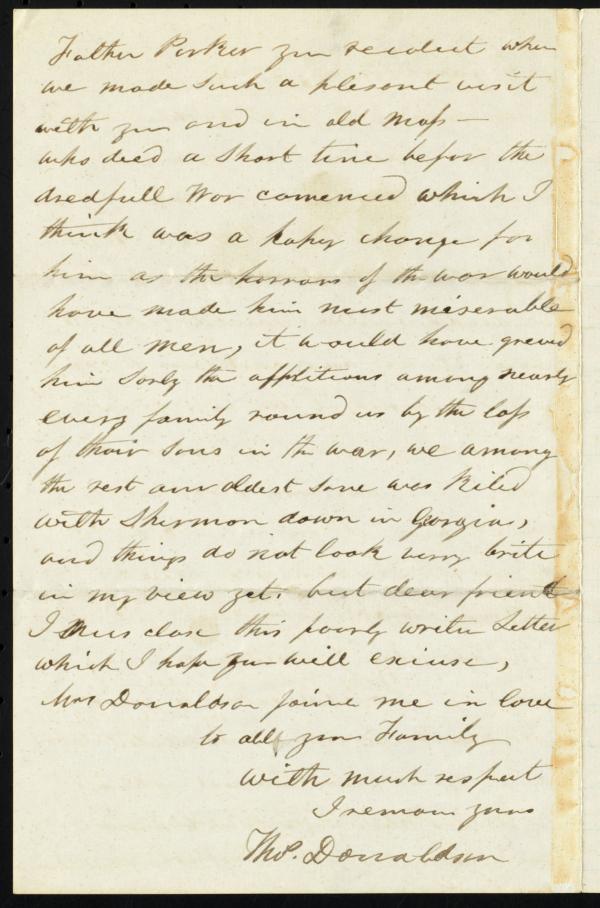 Father Parker you recolect when
we made Such a plesant visit
with you and in old Mass —
who died a Short time befor the
dredfull War comenced which I
think was a hapy change for
him as the horrors of the war would
have made him most miserable
of all men, it would have greved
him Sorly the afflitions among nearly
every family round us by the loss
of their Sons in the war, we among
the rest our oldest Sone was Kiled
with Shermon down in Gorgia,
and things do not look very brite
in my view yet. but dear friend
I mus close this poorly writen Letter
which I hope you will excuse,
Mrs Donaldson joine me in love
to all your Family
with much respect
I remain yours
Thos. Donaldson